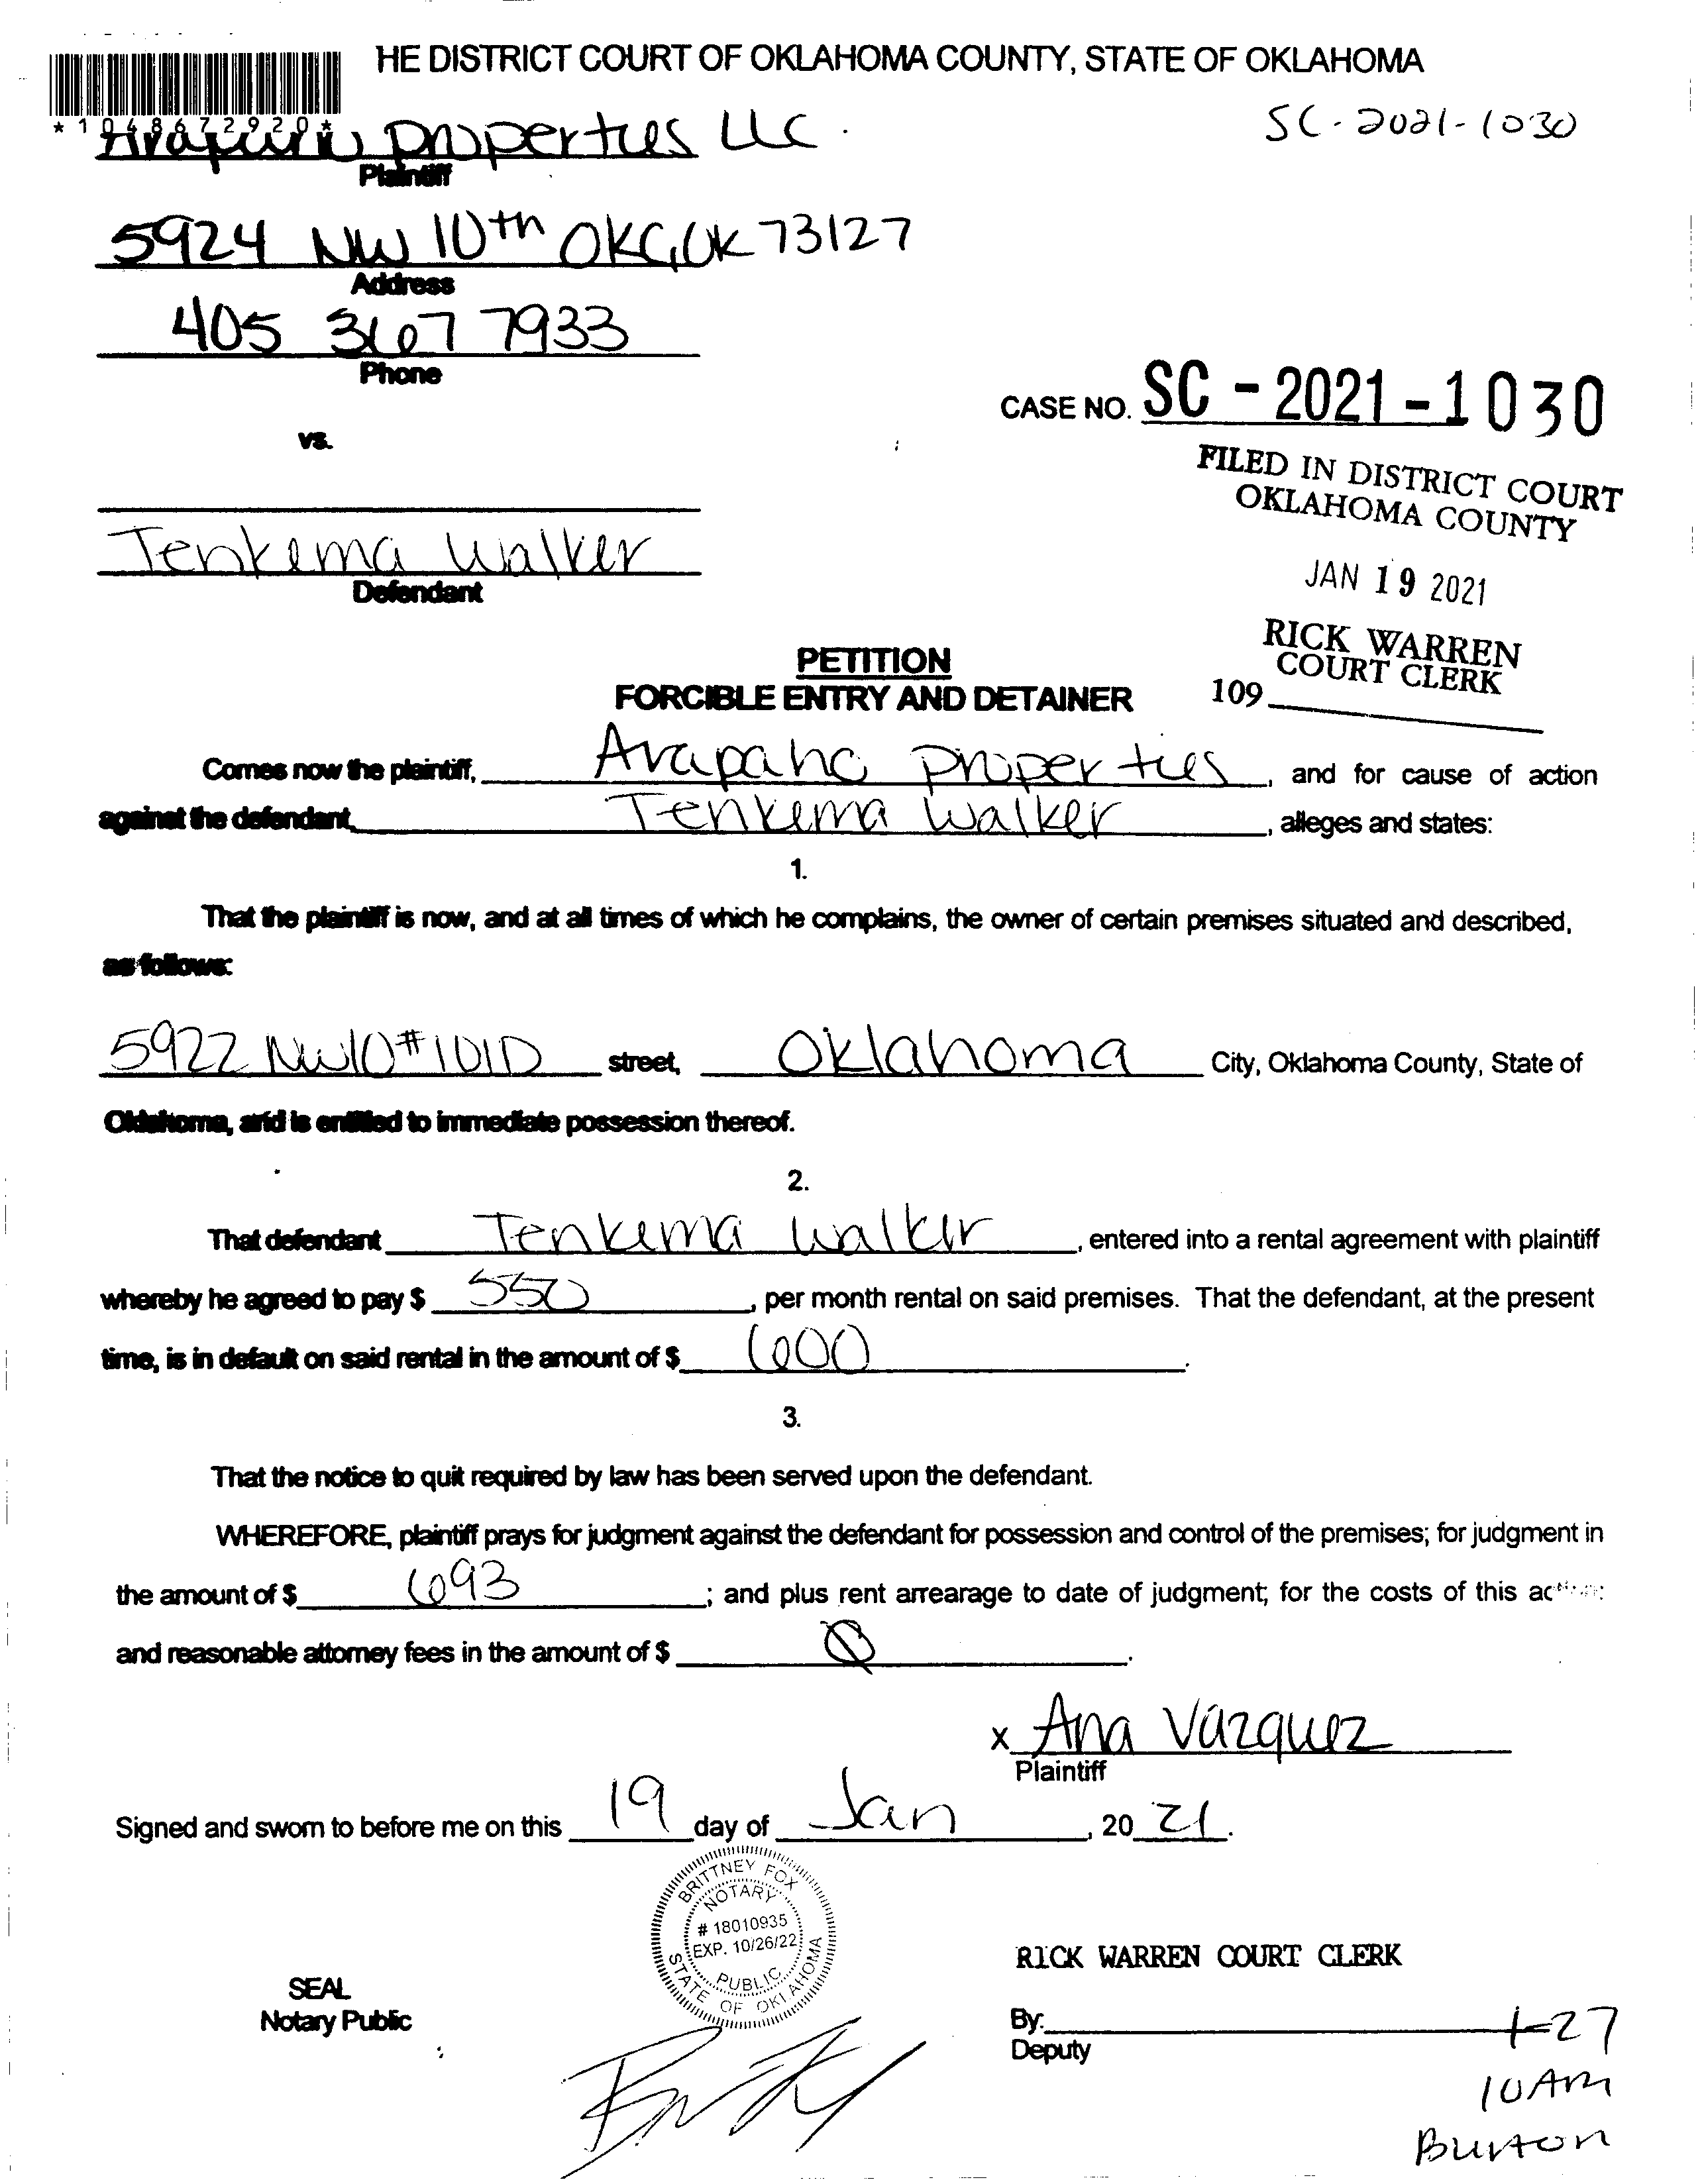 HE DISTRICT COURT OF OKLAHOMA COUNTY, STATE OF OKLAHOMA
*1048672920*
SC-2021-1030
properties LLC.
Plaintiff
5924 NW 10th OKC, OK 73127
Address
405 367 7933
Phone
CASE NO. SC - 2021 - 1030
vs.
FILED IN DISTRICT COURT
OKLAHOMA COUNTY
JAN 19 2021
Tenkema Walker
Defendant
RICK WARREN
COURT CLERK
109
PETITION
FORCIBLE ENTRY AND DETAINER
Comes now the plaintiff, Arapaho properties, and for cause of action
against the defendant, Tenkema Walker, alleges and states:
1.
That the plaintiff is now, and at all times of which he complains, the owner of certain premises situated and described,
as follows:
5922 NW10 #101D street, Oklahoma City, Oklahoma County, State of
Oklahoma, and is entitled to immediate possession thereof.
2.
That defendant Tenkema Walker, entered into a rental agreement with plaintiff
whereby he agreed to pay $ 550, per month rental on said premises. That the defendant, at the present
time, is in default on said rental in the amount of $ 600.
3.
That the notice to quit required by law has been served upon the defendant.
WHEREFORE, plaintiff prays for judgment against the defendant for possession and control of the premises; for judgment in
the amount of $ 693; and plus rent arrearage to date of judgment; for the costs of this action;
and reasonable attorney fees in the amount of $ Ø.
x Ana Vazquez
Plaintiff
Signed and sworn to before me on this 19 day of Jan, 20 21.
BRITTNEY FOX
NOTARY
# 18010935
EXP. 10/26/22
PUBLIC
STATE OF OKLAHOMA
RICK WARREN COURT CLERK
SEAL
Notary Public
By: 1-27
Deputy
10AM
Burton